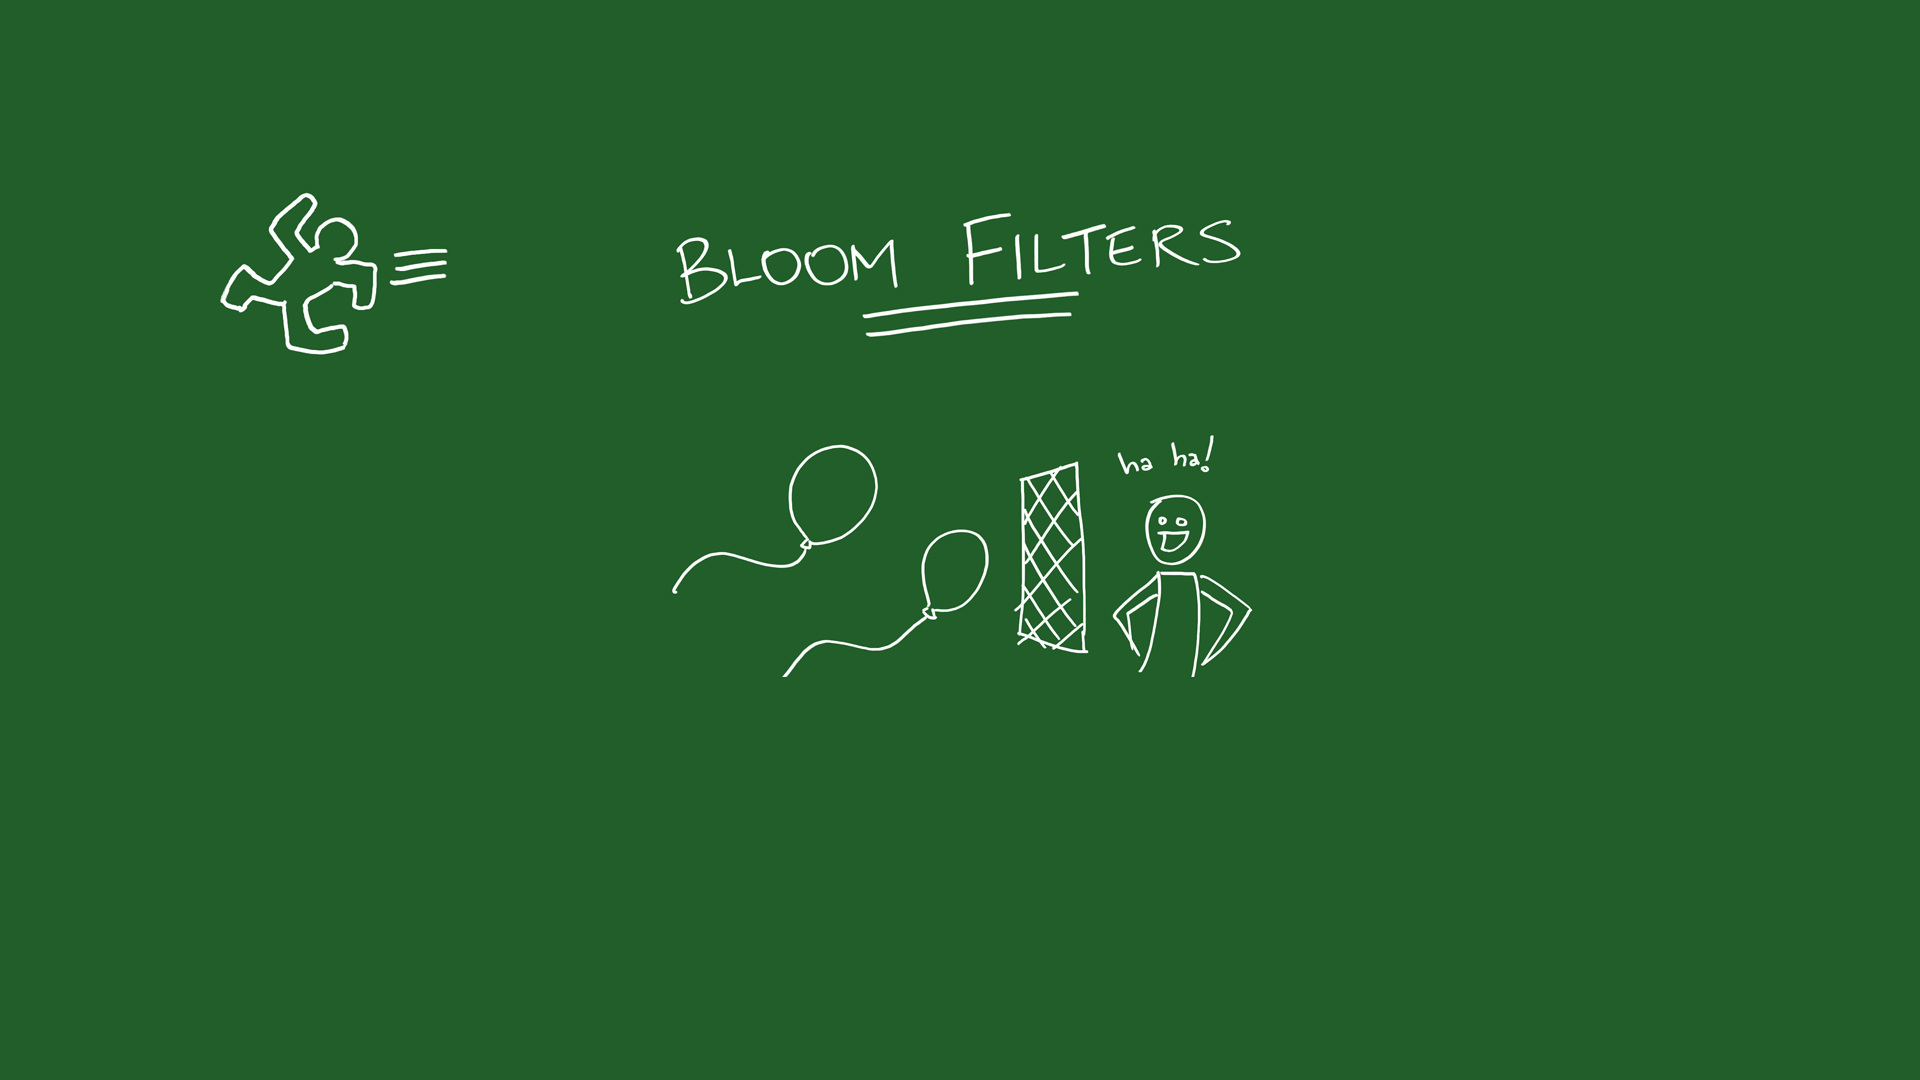 BLOOM FILTERS
ha ha!